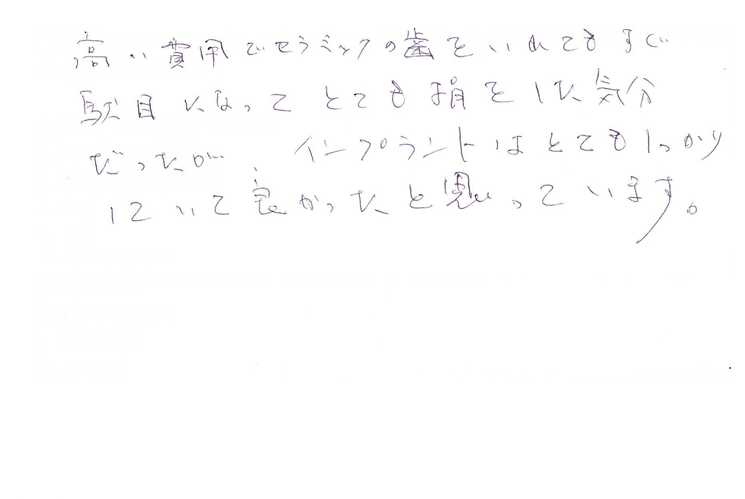 高い費用でセラミックの歯をいれてもすぐ
駄目になってとても損をした気分
だったが インプラントはとてもしっかり
していて良かったと思っています。